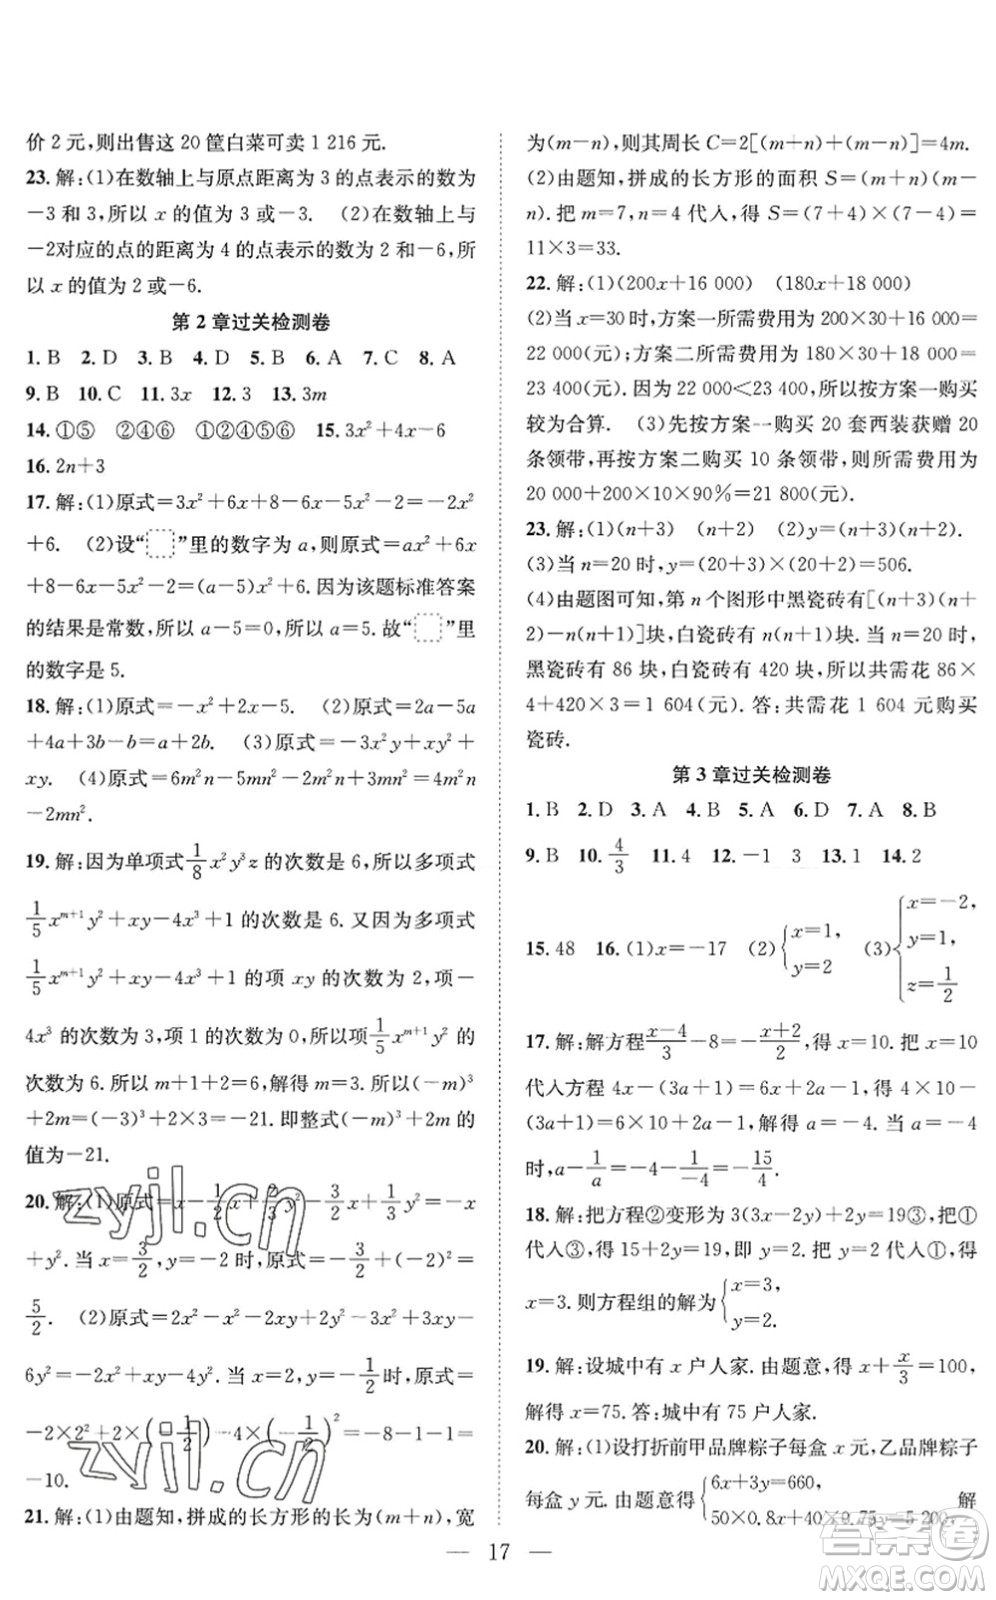 价 2 元,则出售这 20 筐白菜可卖 1 216 元.
23. 解:(1)在数轴上与原点距离为 3 的点表示的数为
－3 和 3,所以 x 的值为 3 或－3. (2)在数轴上与
－2对应的点的距离为 4 的点表示的数为 2 和－6,所
以 x 的值为 2 或－6.
第 2 章过关检测卷
1. B 2. D 3. B 4. D 5. B 6. A 7. C 8. A
9. B 10. C 11. 3x 12. 3 13. 3m
14. ①⑤ ②④⑥ ①②④⑤⑥ 15. 3x²＋4x－6
16. 2n＋3
17. 解:(1)原式＝3x²＋6x＋8－6x－5x²－2＝－2x²
＋6. (2)设“ ”里的数字为 a,则原式＝ax²＋6x
＋8－6x－5x²－2＝(a－5)x²＋6. 因为该题标准答案
的结果是常数,所以 a－5＝0,所以 a＝5. 故“ ”里
的数字是 5.
18. 解:(1)原式＝－x²＋2x－5. (2)原式＝2a－5a
＋4a＋3b－b＝a＋2b. (3)原式＝－3x²y＋xy²＋
xy. (4)原式＝6m²n－5m²n－2mn²＝m²n
－2mn².
19. 解:因为单项式 1/8 x²y³z 的次数是 6,所以多项式
1/5 x^{m+1}y²＋xy－4x³＋1 的次数是 6. 又因为多项式
1/5 x^{m+1}y²＋xy－4x³＋1 的项 xy 的次数为 2,项－
4x³ 的次数为 3,项 1 的次数为 0,所以项 1/5 x^{m+1}y² 的
次数为 6. 所以 m＋1＋2＝6,解得 m＝3. 所以(－m)³
＋2m＝(－3)³＋2×3＝－21. 即整式(－m)³＋2m 的
值为－21.
20. 解:(1)原式＝x－1/2 x＋2/3 y²－3/2 x＋1/3 y²＝－x
＋y². 当 x＝3/2,y＝－2 时,原式＝－3/2＋(－2)²＝
5/2. (2)原式＝2x²－x²－2xy＋2y²－3x²＋3xy－
6y²＝－2x²＋xy－4y². 当 x＝2,y＝－1/2 时,原式＝
－2×2²＋2×(－1/2)－4×(－1/2)²＝－8－1－1＝
－10.
21. 解:(1)由题知,拼成的长方形的长为(m＋n),宽
为(m－n),则其周长 C＝2[(m＋n)＋(m－n)]＝4m.
(2)由题知,拼成的长方形的面积 S＝(m＋n)(m－
n). 把 m＝7,n＝4 代入,得 S＝(7＋4)×(7－4)＝
11×3＝33.
22. 解:(1)(200x＋16 000) (180x＋18 000)
(2)当 x＝30 时,方案一所需费用为 200×30＋16 000＝
22 000(元);方案二所需费用为 180×30＋18 000＝
23 400(元). 因为 22 000＜23 400,所以按方案一购买
较为合算. (3)先按方案一购买 20 套西装获赠 20
条领带,再按方案二购买 10 条领带,所需费用为
20 000＋200×10×90%＝21 800(元).
23. 解:(1)(n＋3) (n＋2) (2)y＝(n＋3)(n＋2).
(3)当 n＝20 时,y＝(20＋3)×(20＋2)＝506.
(4)由题图可知,第 n 个图形中黑瓷砖有[(n＋3)(n＋
2)－n(n＋1)]块,白瓷砖有 n(n＋1)块. 当 n＝20 时,
黑瓷砖有 86 块,白瓷砖有 420 块,所以共需花 86×
4＋420×3＝1 604(元). 答:共需花 1 604 元购买
瓷砖.
第 3 章过关检测卷
1. B 2. D 3. A 4. B 5. A 6. D 7. A 8. B
9. B 10. 4/3 11. 4 12. －1 3 13. 1 14. 2
15. 48 16. (1)x＝－17 (2){x＝1, y＝2 (3){x＝－2, y＝1, z＝1/2
17. 解:解方程 (x－4)/3－8＝－(x＋2)/2,得 x＝10. 把 x＝10
代入方程 4x－(3a＋1)＝6x＋2a－1,得 4×10－
(3a＋1)＝6×10＋2a－1,解得 a＝－4. 当 a＝－4
时,a－1/a＝－4－1/(－4)＝－15/4.
18. 解:把方程②变形为 3(3x－2y)＋2y＝19③,把①
代入③,得 15＋2y＝19,即 y＝2. 把 y＝2 代入①,得
x＝3. 则方程组的解为{x＝3, y＝2.
19. 解:设城中有 x 户人家. 由题意,得 x＋x/3＝100,
解得 x＝75. 答:城中有 75 户人家.
20. 解:(1)设打折前甲品牌粽子每盒 x 元,乙品牌粽子
每盒 y 元. 由题意得{6x＋3y＝660, 50×0.8x＋40×0.75y＝5 200, 解
— 17 —
zyjl.cn
zyjl.cn
答案圈
MXQE.COM